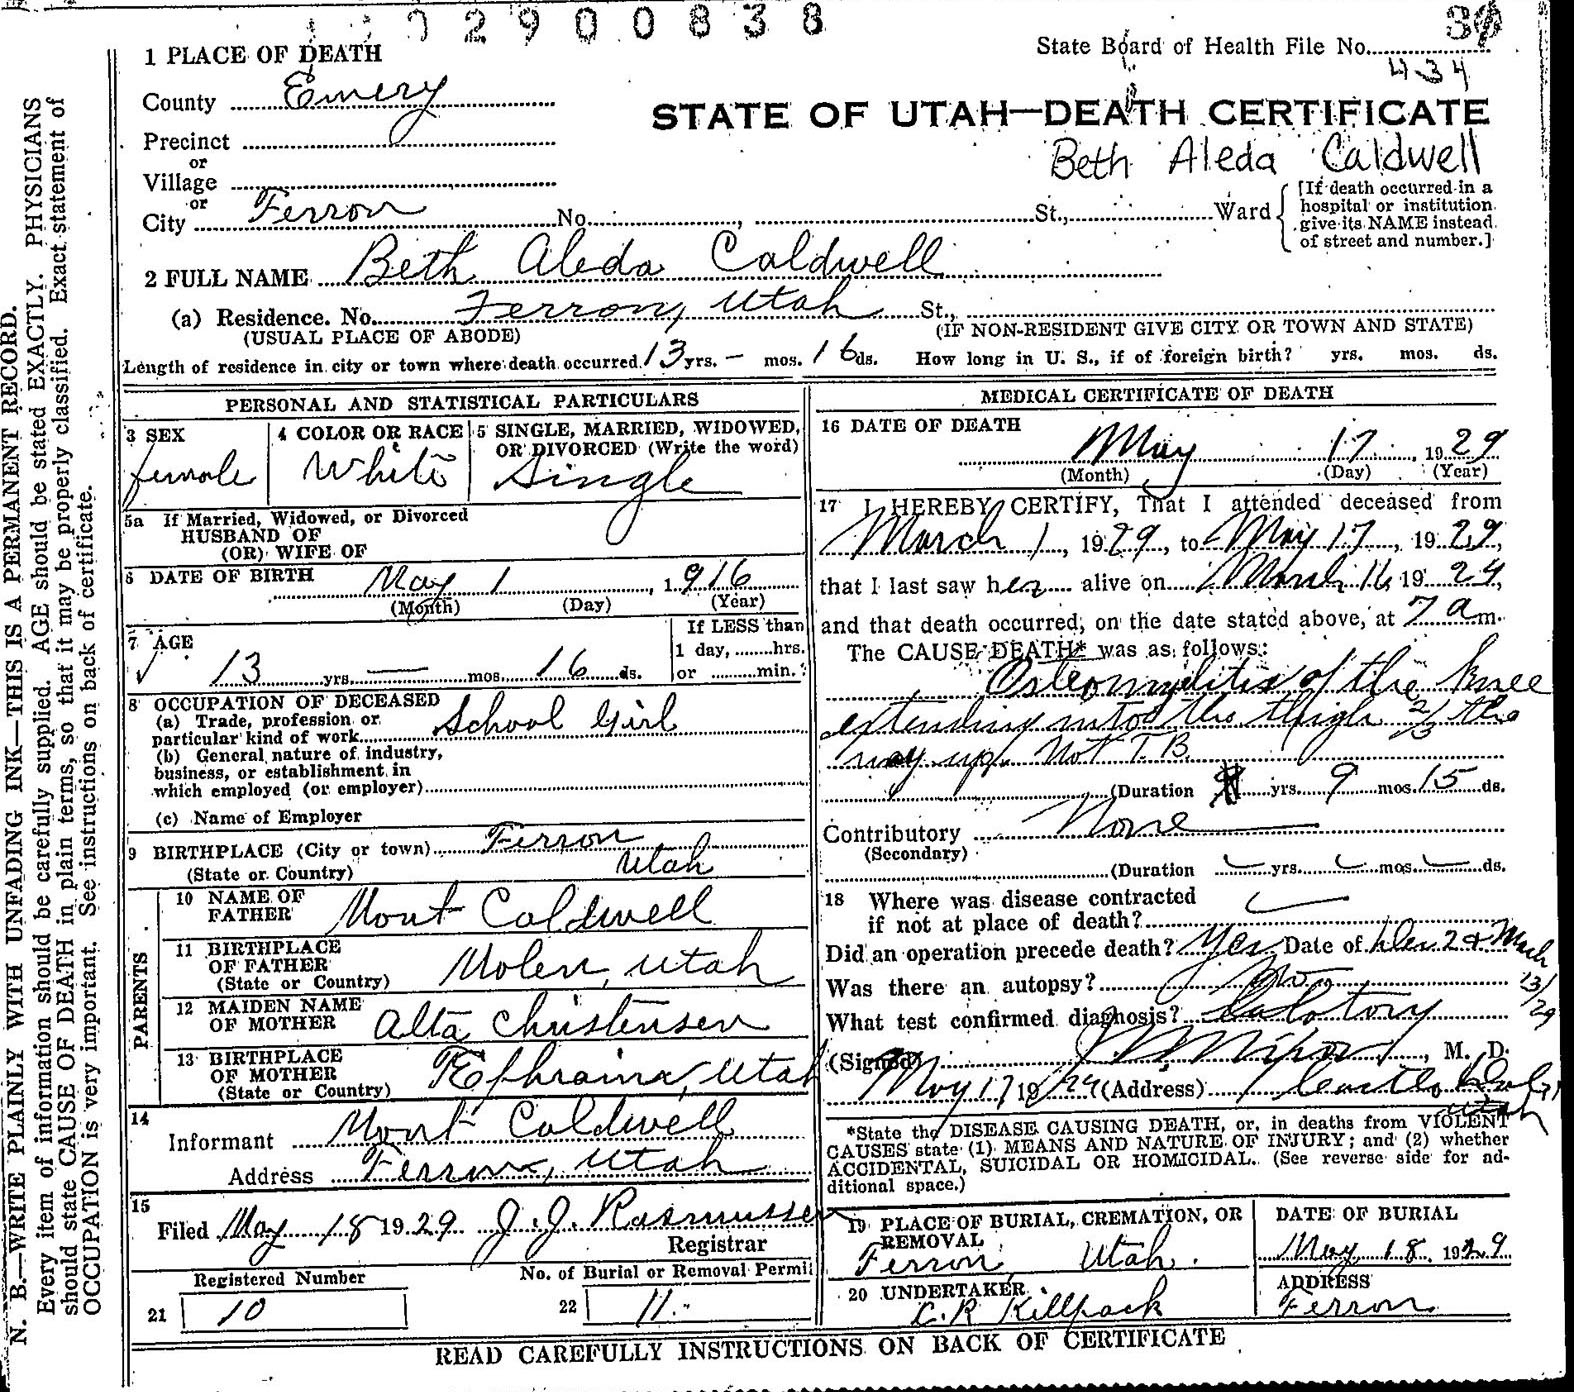 02900838
1 PLACE OF DEATH
State Board of Health File No.
434
County Emery
STATE OF UTAH—DEATH CERTIFICATE
Precinct
or
Beth Aleda Caldwell
Village
or
City Ferron No. , St., Ward
[If death occurred in a
hospital or institution
give its NAME instead
of street and number.]
2 FULL NAME Beth Aleda Caldwell
(a) Residence. No. Ferron, Utah St.,
(USUAL PLACE OF ABODE) (IF NON-RESIDENT GIVE CITY OR TOWN AND STATE)
Length of residence in city or town where death occurred 13 yrs. – mos. 16 ds. How long in U. S., if of foreign birth? yrs. mos. ds.
PERSONAL AND STATISTICAL PARTICULARS
3 SEX
female
4 COLOR OR RACE
White
5 SINGLE, MARRIED, WIDOWED,
OR DIVORCED (Write the word)
Single
5a If Married, Widowed, or Divorced
HUSBAND OF
(OR) WIFE OF
6 DATE OF BIRTH May 1, 1916
(Month) (Day) (Year)
7 AGE
13 yrs. — mos. 16 ds.
If LESS than
1 day, ........hrs.
or ........min.
8 OCCUPATION OF DECEASED
(a) Trade, profession or
particular kind of work School Girl
(b) General nature of industry,
business, or establishment in
which employed (or employer)
(c) Name of Employer
9 BIRTHPLACE (City or town) Ferron
(State or Country) Utah
PARENTS
10 NAME OF
FATHER Mont Caldwell
11 BIRTHPLACE
OF FATHER
(State or Country) Molen, Utah
12 MAIDEN NAME
OF MOTHER Alta Christensen
13 BIRTHPLACE
OF MOTHER
(State or Country) Ephraim, Utah
14
Informant Mont Caldwell
Address Ferron, Utah
15
Filed May 18 1929 J. J. Rasmussen
Registrar
Registered Number
21 10
No. of Burial or Removal Permit
22 11
MEDICAL CERTIFICATE OF DEATH
16 DATE OF DEATH
May 17, 1929
(Month) (Day) (Year)
17 I HEREBY CERTIFY, That I attended deceased from
March 1, 1929, to May 17, 1929,
that I last saw her alive on March 16, 1929,
and that death occurred, on the date stated above, at 7 a m.
The CAUSE DEATH* was as follows:
Osteomylitis of the knee
extending into the thigh 2/3 the
way up. Not T.B.
(Duration yrs. 9 mos. 15 ds.
Contributory None
(Secondary)
(Duration yrs. mos. ds.
18 Where was disease contracted
if not at place of death?
Did an operation precede death? Yes Date of Dec. 2 & Mach
13/29
Was there an autopsy? No
What test confirmed diagnosis?
(Signed) , M. D.
May 17 1929 (Address) Castle Dale,
Utah
*State the DISEASE CAUSING DEATH, or, in deaths from VIOLENT
CAUSES state (1) MEANS AND NATURE OF INJURY; and (2) whether
ACCIDENTAL, SUICIDAL OR HOMICIDAL. (See reverse side for ad-
ditional space.)
19 PLACE OF BURIAL, CREMATION, OR
REMOVAL
Ferron, Utah.
DATE OF BURIAL
May 18, 1929
20 UNDERTAKER
C. R. Killpack
ADDRESS
Ferron
READ CAREFULLY INSTRUCTIONS ON BACK OF CERTIFICATE
N. B.—WRITE PLAINLY WITH UNFADING INK—THIS IS A PERMANENT RECORD.
Every item of information should be carefully supplied. AGE should be stated EXACTLY. PHYSICIANS
should state CAUSE OF DEATH in plain terms, so that it may be properly classified. Exact statement of
OCCUPATION is very important. See instructions on back of certificate.